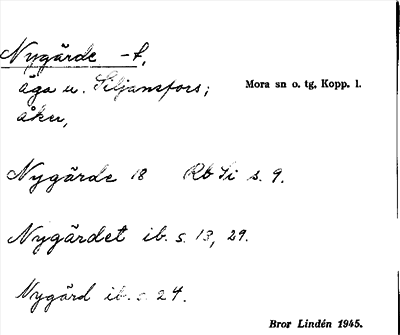 Nygärde -t,
äga u. Siljansfors;
Mora sn o. tg, Kopp. l.
åker,
Nygärde 18 Rb Si s. 9.
Nygärdet ib. s. 13, 29.
Nygärd ib. s. 24.
Bror Lindén 1945.